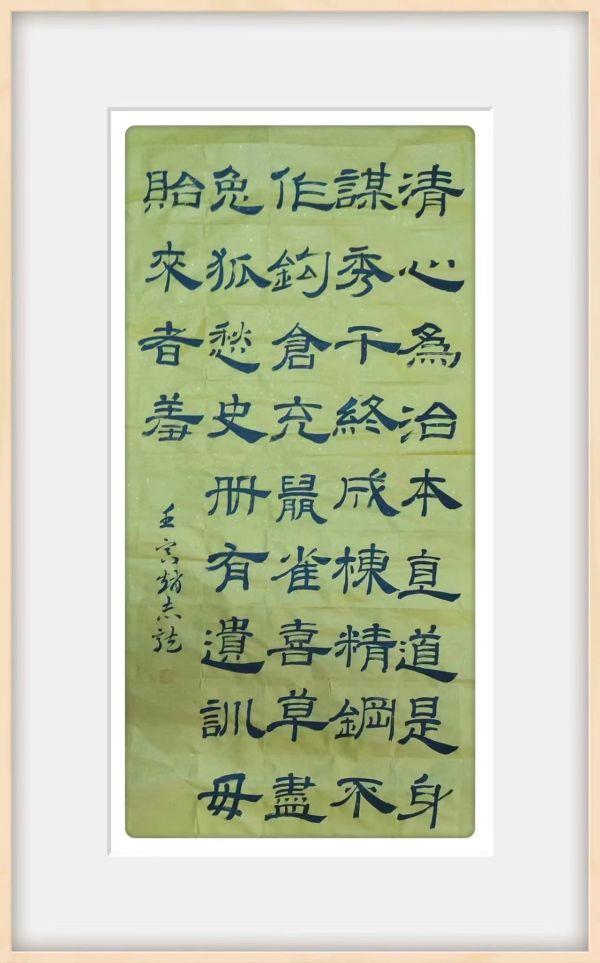 清心為治本直道是身
謀秀干終成棟精鋼不
作鈎倉充鼠雀喜草盡
兔狐愁史册有遺訓毋
貽來者羞
壬寅趙志龍